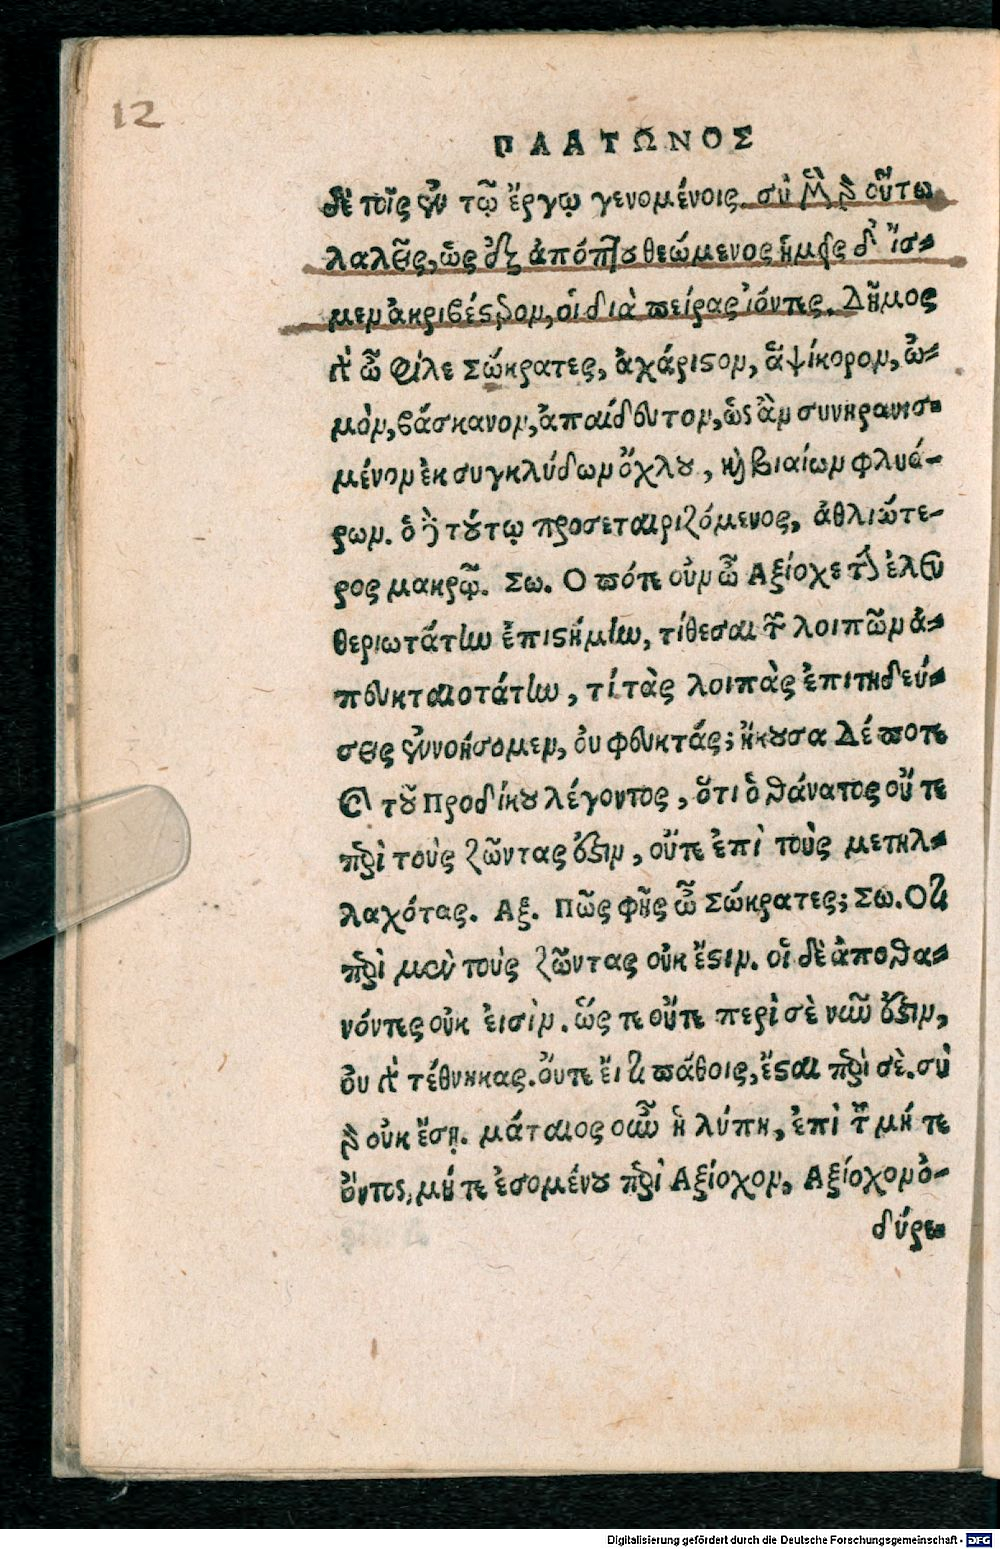 12
ΠΛΑΤΩΝΟΣ
δὲ τοῖς ἐν τῷ ἔργῳ γενομένοις. σὺ μὲν γὰρ οὕτω
λαλεῖς, ὡς ἐξ ἀπόπτου θεώμενος ἡμεῖς δ' ἴσ-
μεν ἀκριβέστερον, οἱ διὰ πείρας ἰόντες. Δῆμος
γὰρ ὦ φίλε Σώκρατες, ἀχάριστον, ἅψίκορον, ὠ-
μὸν, βάσκανον, ἀπαίδευτον, ὡς ἂν συνηρανισ-
μένον ἐκ συγκλύδων ὄχλου, καὶ βιαίων φλυά-
ρων. ὁ δὲ τούτῳ προσεταιριζόμενος, ἀθλιώτε-
ρος μακρῷ. Σω. Ὁ πότε οὖν ὦ Ἀξίοχε τὴν ἐλευ
θεριωτάτην ἐπιστήμην, τίθεσαι τῶν λοιπῶν ἀ-
πευκταιοτάτην, τί τὰς λοιπὰς ἐπιτηδεύ-
σεις ἐννοήσομεν, οὐ φευκτάς; ἤκουσα Δέ ποτε
καὶ τοῦ Προδίκου λέγοντος, ὅτι ὁ θάνατος οὔ τε
περὶ τοὺς ζῶντας ἐστιν, οὔτε ἐπὶ τοὺς μετηλ-
λαχότας. Αξ. Πῶς φῂς ὦ Σώκρατες; Σω. Οτι
περὶ μὲν τοὺς ζῶντας οὐκ ἔστιν. οἱ δὲ ἀποθα-
νόντες οὐκ εἰσὶν. ὥς τε οὔτε περὶ σὲ νῦν ἐστιν,
οὐ γὰρ τέθνηκας. οὔτε εἴ τι πάθοις, ἔσται περὶ σὲ. σὺ
γὰρ οὐκ ἔσῃ. μάταιος οὖν ἡ λύπη, ἐπὶ τοῦ μή τε
ὄντος, μή τε ἐσομένου περὶ Ἀξίοχον, Ἀξίοχον ὀ-
δύρε-
Digitalisierung gefördert durch die Deutsche Forschungsgemeinschaft - DFG